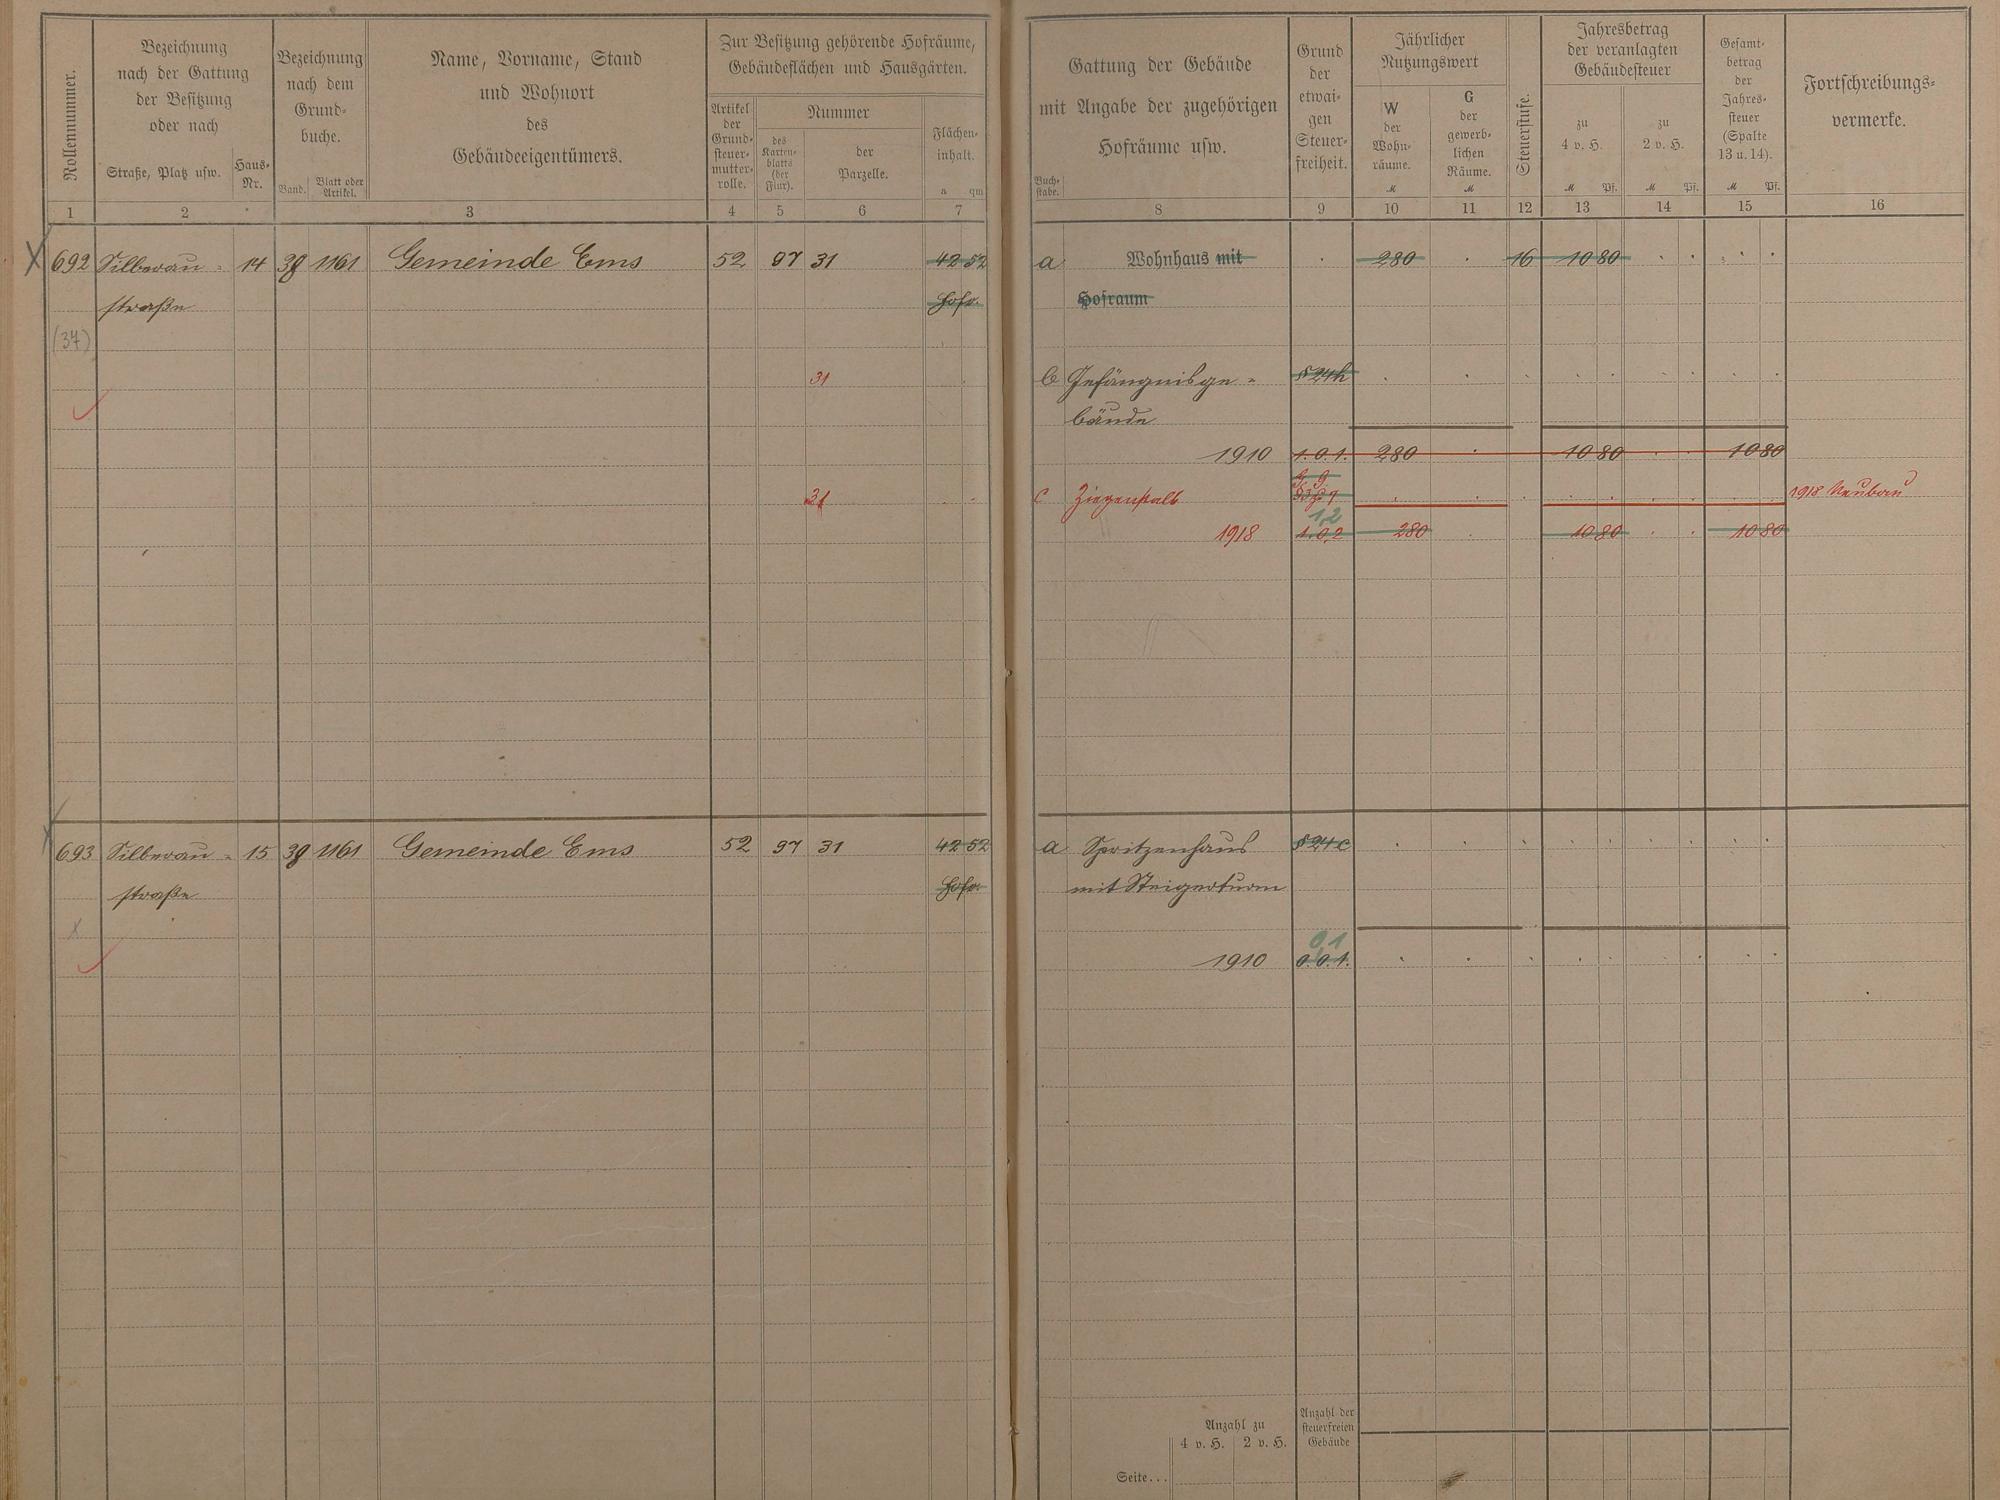 Rollennummer.
Bezeichnung
nach der Gattung
der Besitzung
oder nach
Straße, Platz usw.
Haus-
Nr.
Bezeichnung
nach dem
Grund-
buche.
Band.
Blatt oder
Artikel.
Name, Vorname, Stand
und Wohnort
des
Gebäudeeigentümers.
Zur Besitzung gehörende Hofräume,
Gebäudeflächen und Hausgärten.
Artikel
der
Grund-
steuer-
mutter-
rolle.
Nummer
des
Karten-
blatts
(der
Flur).
der
Parzelle.
Flächen-
inhalt.
a qm
1 2 3 4 5 6 7
Buch-
stabe.
Gattung der Gebäude
mit Angabe der zugehörigen
Hofräume usw.
Grund
der
etwai-
gen
Steuer-
freiheit.
Jährlicher
Nutzungswert
W
der
Wohn-
räume.
M
G
der
gewerb-
lichen
Räume.
M
Steuerstufe.
Jahresbetrag
der veranlagten
Gebäudesteuer
zu
4 v. H.
M Pf.
zu
2 v. H.
M Pf.
Gesamt-
betrag
der
Jahres-
steuer
(Spalte
13 u. 14).
M Pf.
Fortschreibungs-
vermerke.
8 9 10 11 12 13 14 15 16
692 Silberau- 14 39 1161 Gemeinde Ems 52 97 31 42 52
straße Hofr.
(37)
31
31
a Wohnhaus mit 280 16 10 80
Hofraum
b Gefängnisge- § 24h
bäude
1910 1. 0. 1. 280 10 80 10 80
c Ziegenstall 1918 Neubau
1,2
1918 1. 0. 2 280 10 80 10 80
693 Silberau- 15 39 1161 Gemeinde Ems 52 97 31 42 52
straße Hofr.
a Spritzenhaus § 24 c
mit Steigerturm
0,1
1910 0. 0. 1.
Anzahl zu
4 v. H. 2 v. H.
Anzahl der
steuerfreien
Gebäude
Seite...